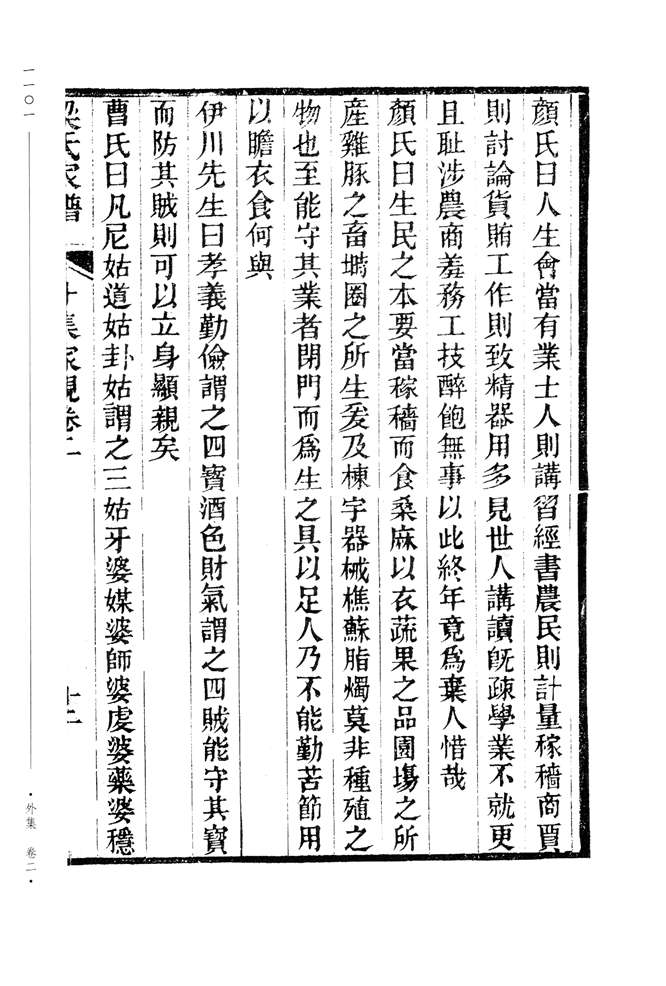 顏氏曰人生會當有業士人則講習經書農民則計量稼穡商賈
則討論貨賄工作則致精器用多見世人講讀旣疎學業不就更
且耻涉農商羞務工技醉飽無事以此終年竟爲棄人惜哉
顏氏曰生民之本要當稼穡而食桑麻以衣蔬果之品園塲之所
產雞豚之畜塒圈之所生爰及棟宇器械樵蘇脂燭莫非種殖之
物也至能守其業者閉門而爲生之具以足人乃不能勤苦節用
以贍衣食何與
伊川先生曰孝義勤儉謂之四寳酒色財氣謂之四賊能守其寳
而防其賊則可以立身顯親矣
曹氏曰凡尼姑道姑卦姑謂之三姑牙婆媒婆師婆虔婆藥婆穩
梁氏家譜 外集家規卷二 十二
一一〇一
·外集 卷二·